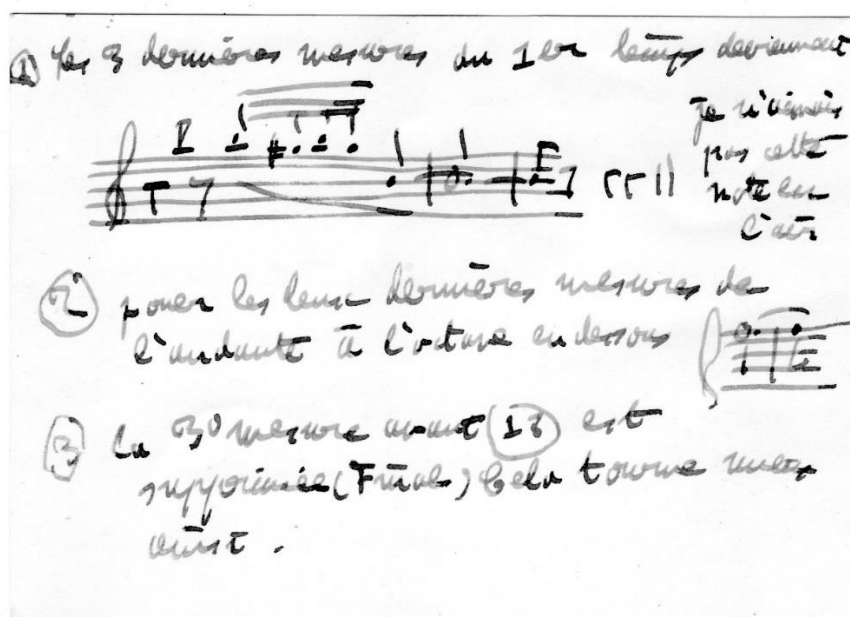 ① les 3 dernières mesures du 1er temps deviennent
je n'aimais
pas cette
note en
l'air
② jouer les deux dernières mesures de
l'andante à l'octave en dessous
③ la 3e mesure avant 18 est
supprimée (Final) Cela tourne mieux
ainsi.